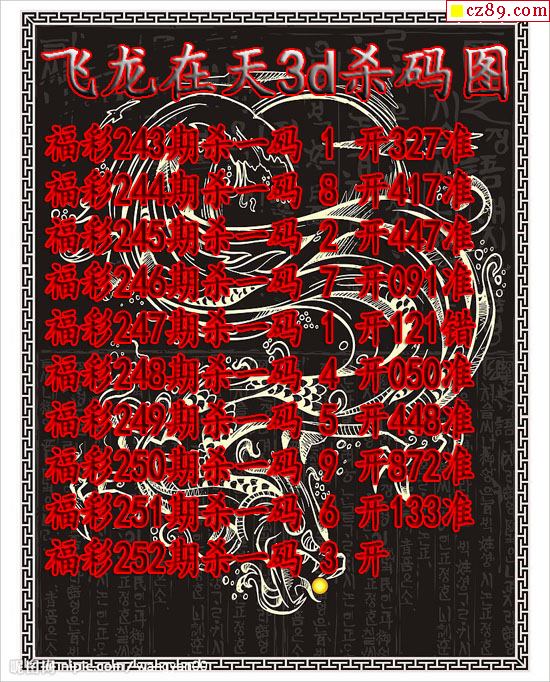 cz89.com
飞龙在天3d杀码图
福彩243期杀一码 1 开327准
福彩244期杀一码 8 开417准
福彩245期杀一码 2 开447准
福彩246期杀一码 7 开091准
福彩247期杀一码 1 开121错
福彩248期杀一码 4 开050准
福彩249期杀一码 5 开448准
福彩250期杀一码 9 开872准
福彩251期杀一码 6 开133准
福彩252期杀一码 3 开